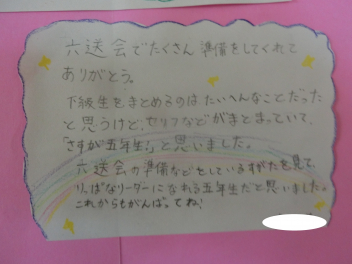 六送会でたくさん準備をしてくれて
ありがとう。
下級生をまとめるのは、たいへんなことだった
と思うけど、セリフなどがまとまっていて、
「さすが五年生!」と思いました。
六送会の準備などをしているすがたを見て、
りっぱなリーダーになれる五年生だと思いました。
これからもがんばってね!